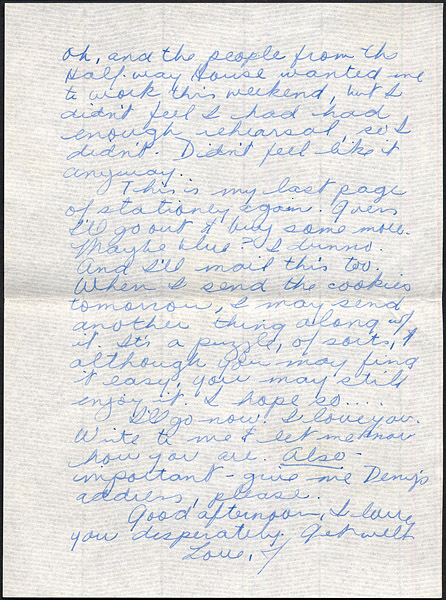 oh, and the people from the
Half-way House wanted me
to work this weekend, but I
didn't feel I had had
enough rehearsal, so I
didn't. Didn't feel like it
anyway..
This is my last page
of stationey again. Guess
I'll go out & buy some more.
Maybe blue? I dunno.
And I'll mail this too.
When I send the cookies
tomorrow, I may send
another thing along w/
it. It's a puzzle, of sorts, &
although you may find
it easy, you may still
enjoy it. I hope so....
I'll go now. I love you.
Write to me & let me know
how you are. Also -
important - give me Deny's
address, please.
Good afternoon, I love
you desperately. Get well
Love,